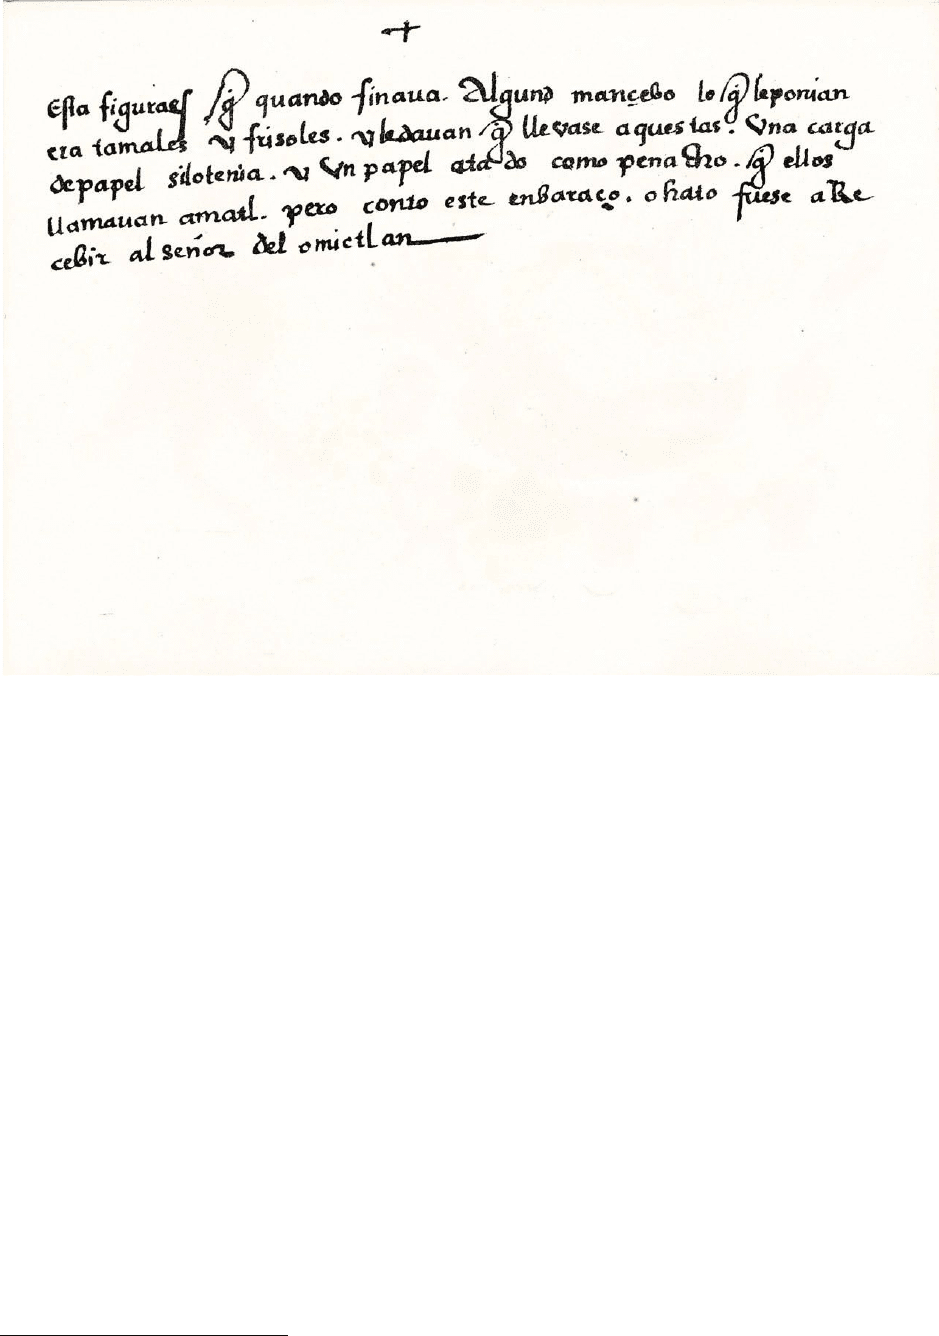 Esta figura es q̃ quando finaua. Algund mançebo lo q̃ le ponian
era tamales y frisoles. y le dauan q̃ lleuase a questas. Vna carga
de papel si lo tenia. y Vn papel atado como penacho. q̃ ellos
llamauan amatl. pero conto este enbaraço. o hato fuese a Re
cebir al señor del omictlan